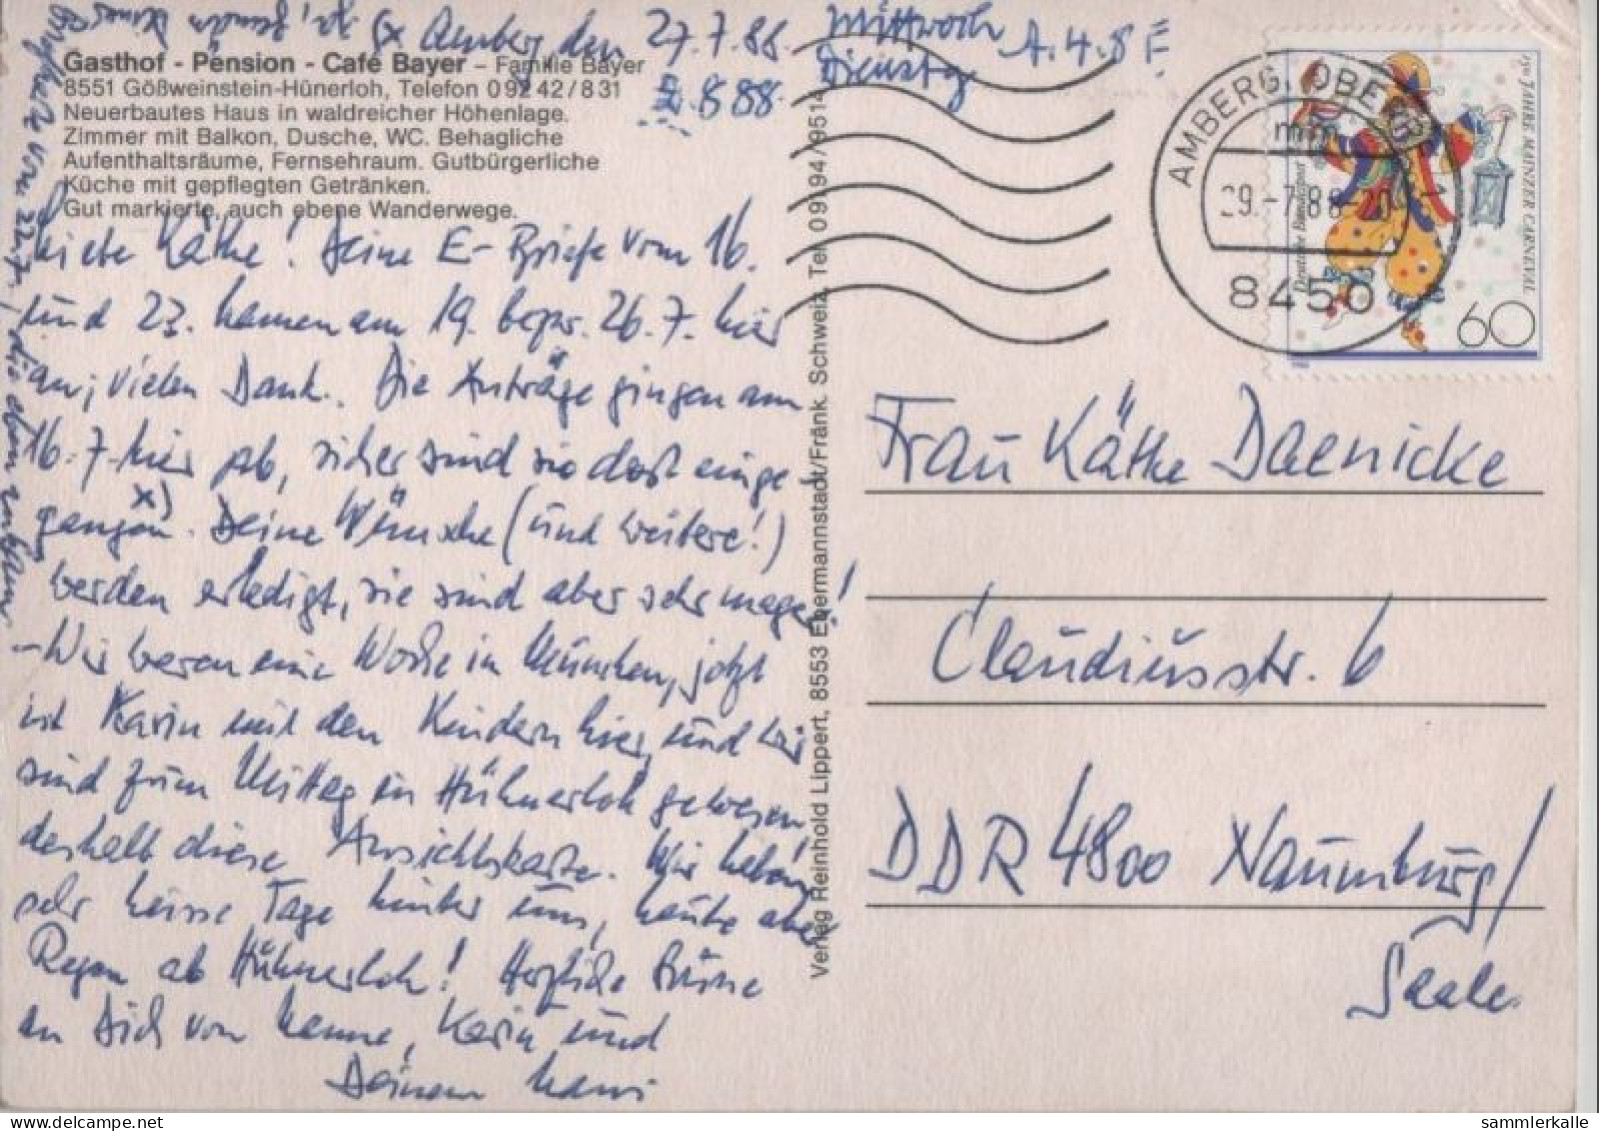 Amberg, den 27.7.88. Mittwoch
2.8.88. Dienstag
A. 4.8.
Gasthof - Pension - Café Bayer – Familie Bayer
8551 Gößweinstein-Hünerloh, Telefon 0 92 42 / 8 31
Neuerbautes Haus in waldreicher Höhenlage.
Zimmer mit Balkon, Dusche, WC. Behagliche
Aufenthaltsräume, Fernsehraum. Gutbürgerliche
Küche mit gepflegten Getränken.
Gut markierte, auch ebene Wanderwege.
Liebe Käthe! Deine E-Briefe vom 16.
und 23. kamen am 19. bezw. 26.7. hier
an, vielen Dank. Die Anträge gingen am
16.7. hier ab, sicher sind sie dort einge-
gangen. x) Deine Wünsche (und weitere!)
werden erledigt, sie sind aber sehr mager!
- Wir waren eine Woche in München, jetzt
ist Karin mit den Kindern hier, und wir
sind zum Mittag in Hühnerloh gewesen,
deshalb diese Ansichtskarte. Wir haben
sehr heisse Tage hinter uns, heute aber
Regen ab Hühnerloh! Herzliche Grüsse
an Dich von Hanne, Karin und
Deinem Hans
Verlag Reinhold Lippert, 8553 Ebermannstadt/Fränk. Schweiz, Tel. 0 91 94 / 95 14
AMBERG, OBERPF 1
mm
29.-7.88-20
8450
Deutsche Bundespost
150 JAHRE MAINZER CARNEVAL
60
Frau Käthe Daenicke
Claudiusstr. 6
DDR 4800 Naumburg/
Saale
sammlerkalle